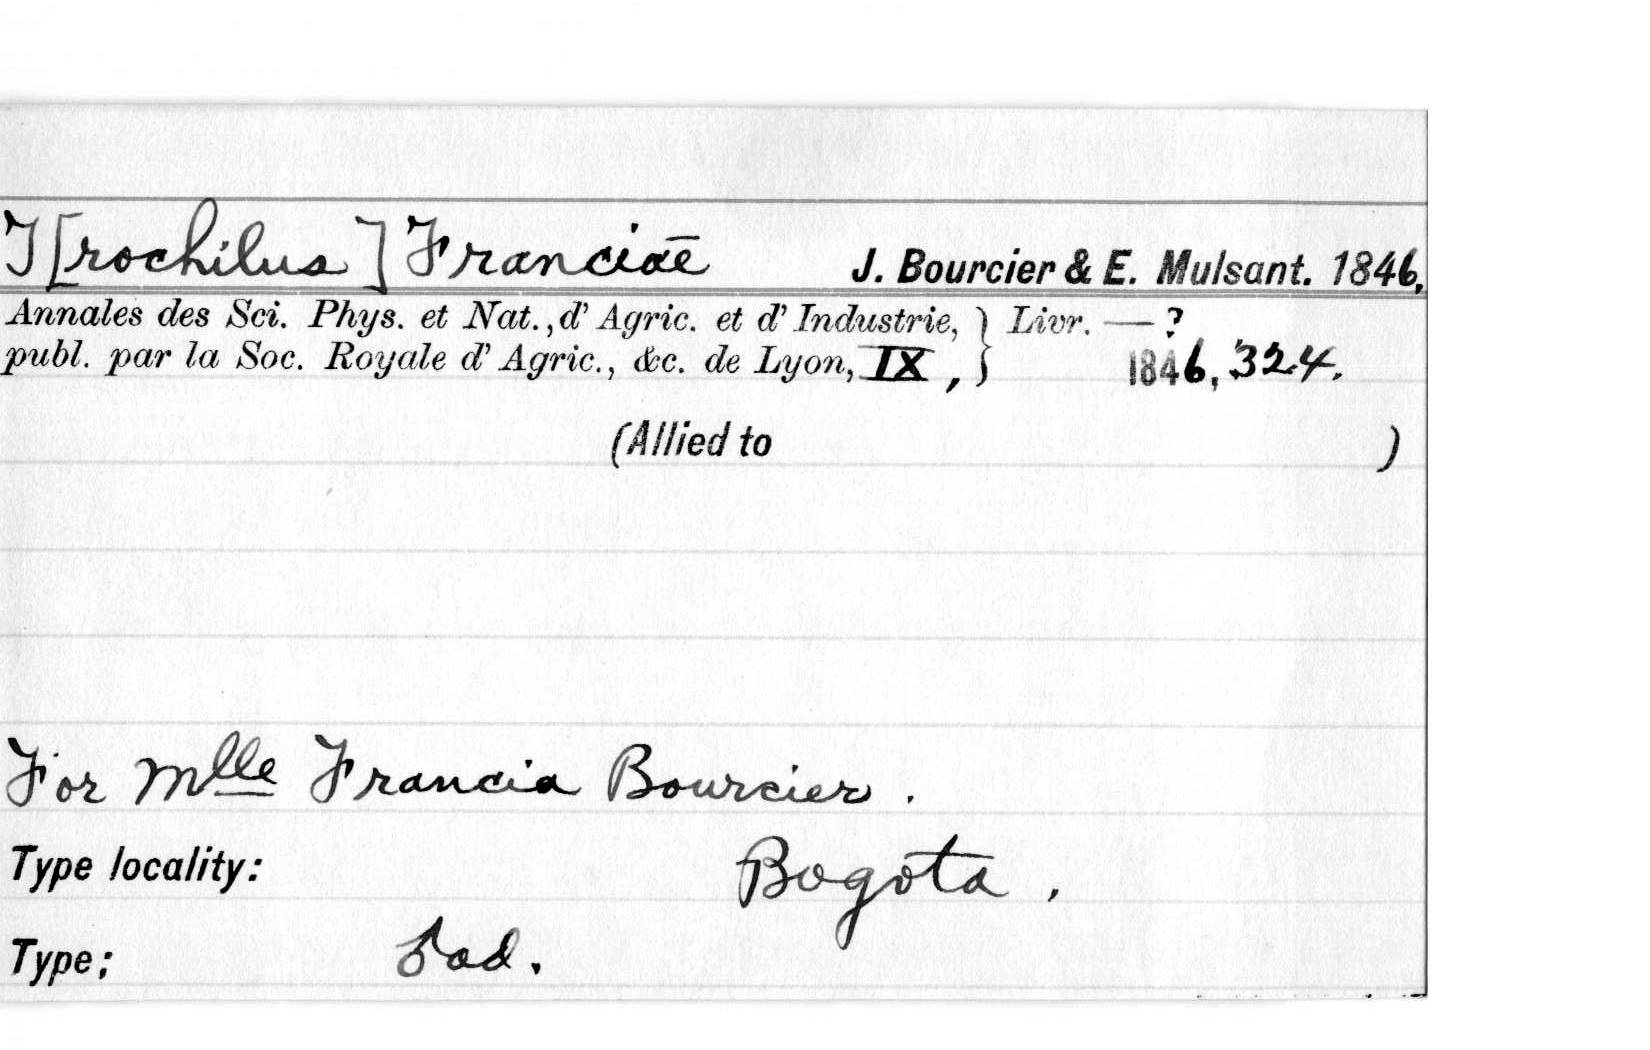 T[rochilus] Franciae J. Bourcier & E. Mulsant. 1846,
Annales des Sci. Phys. et Nat., d' Agric. et d' Industrie, } Livr. — ?
publ. par la Soc. Royale d' Agric., &c. de Lyon, IX, } 1846, 324.
(Allied to )
For Mlle Francia Bourcier.
Type locality: Bogota.
Type: Sad.